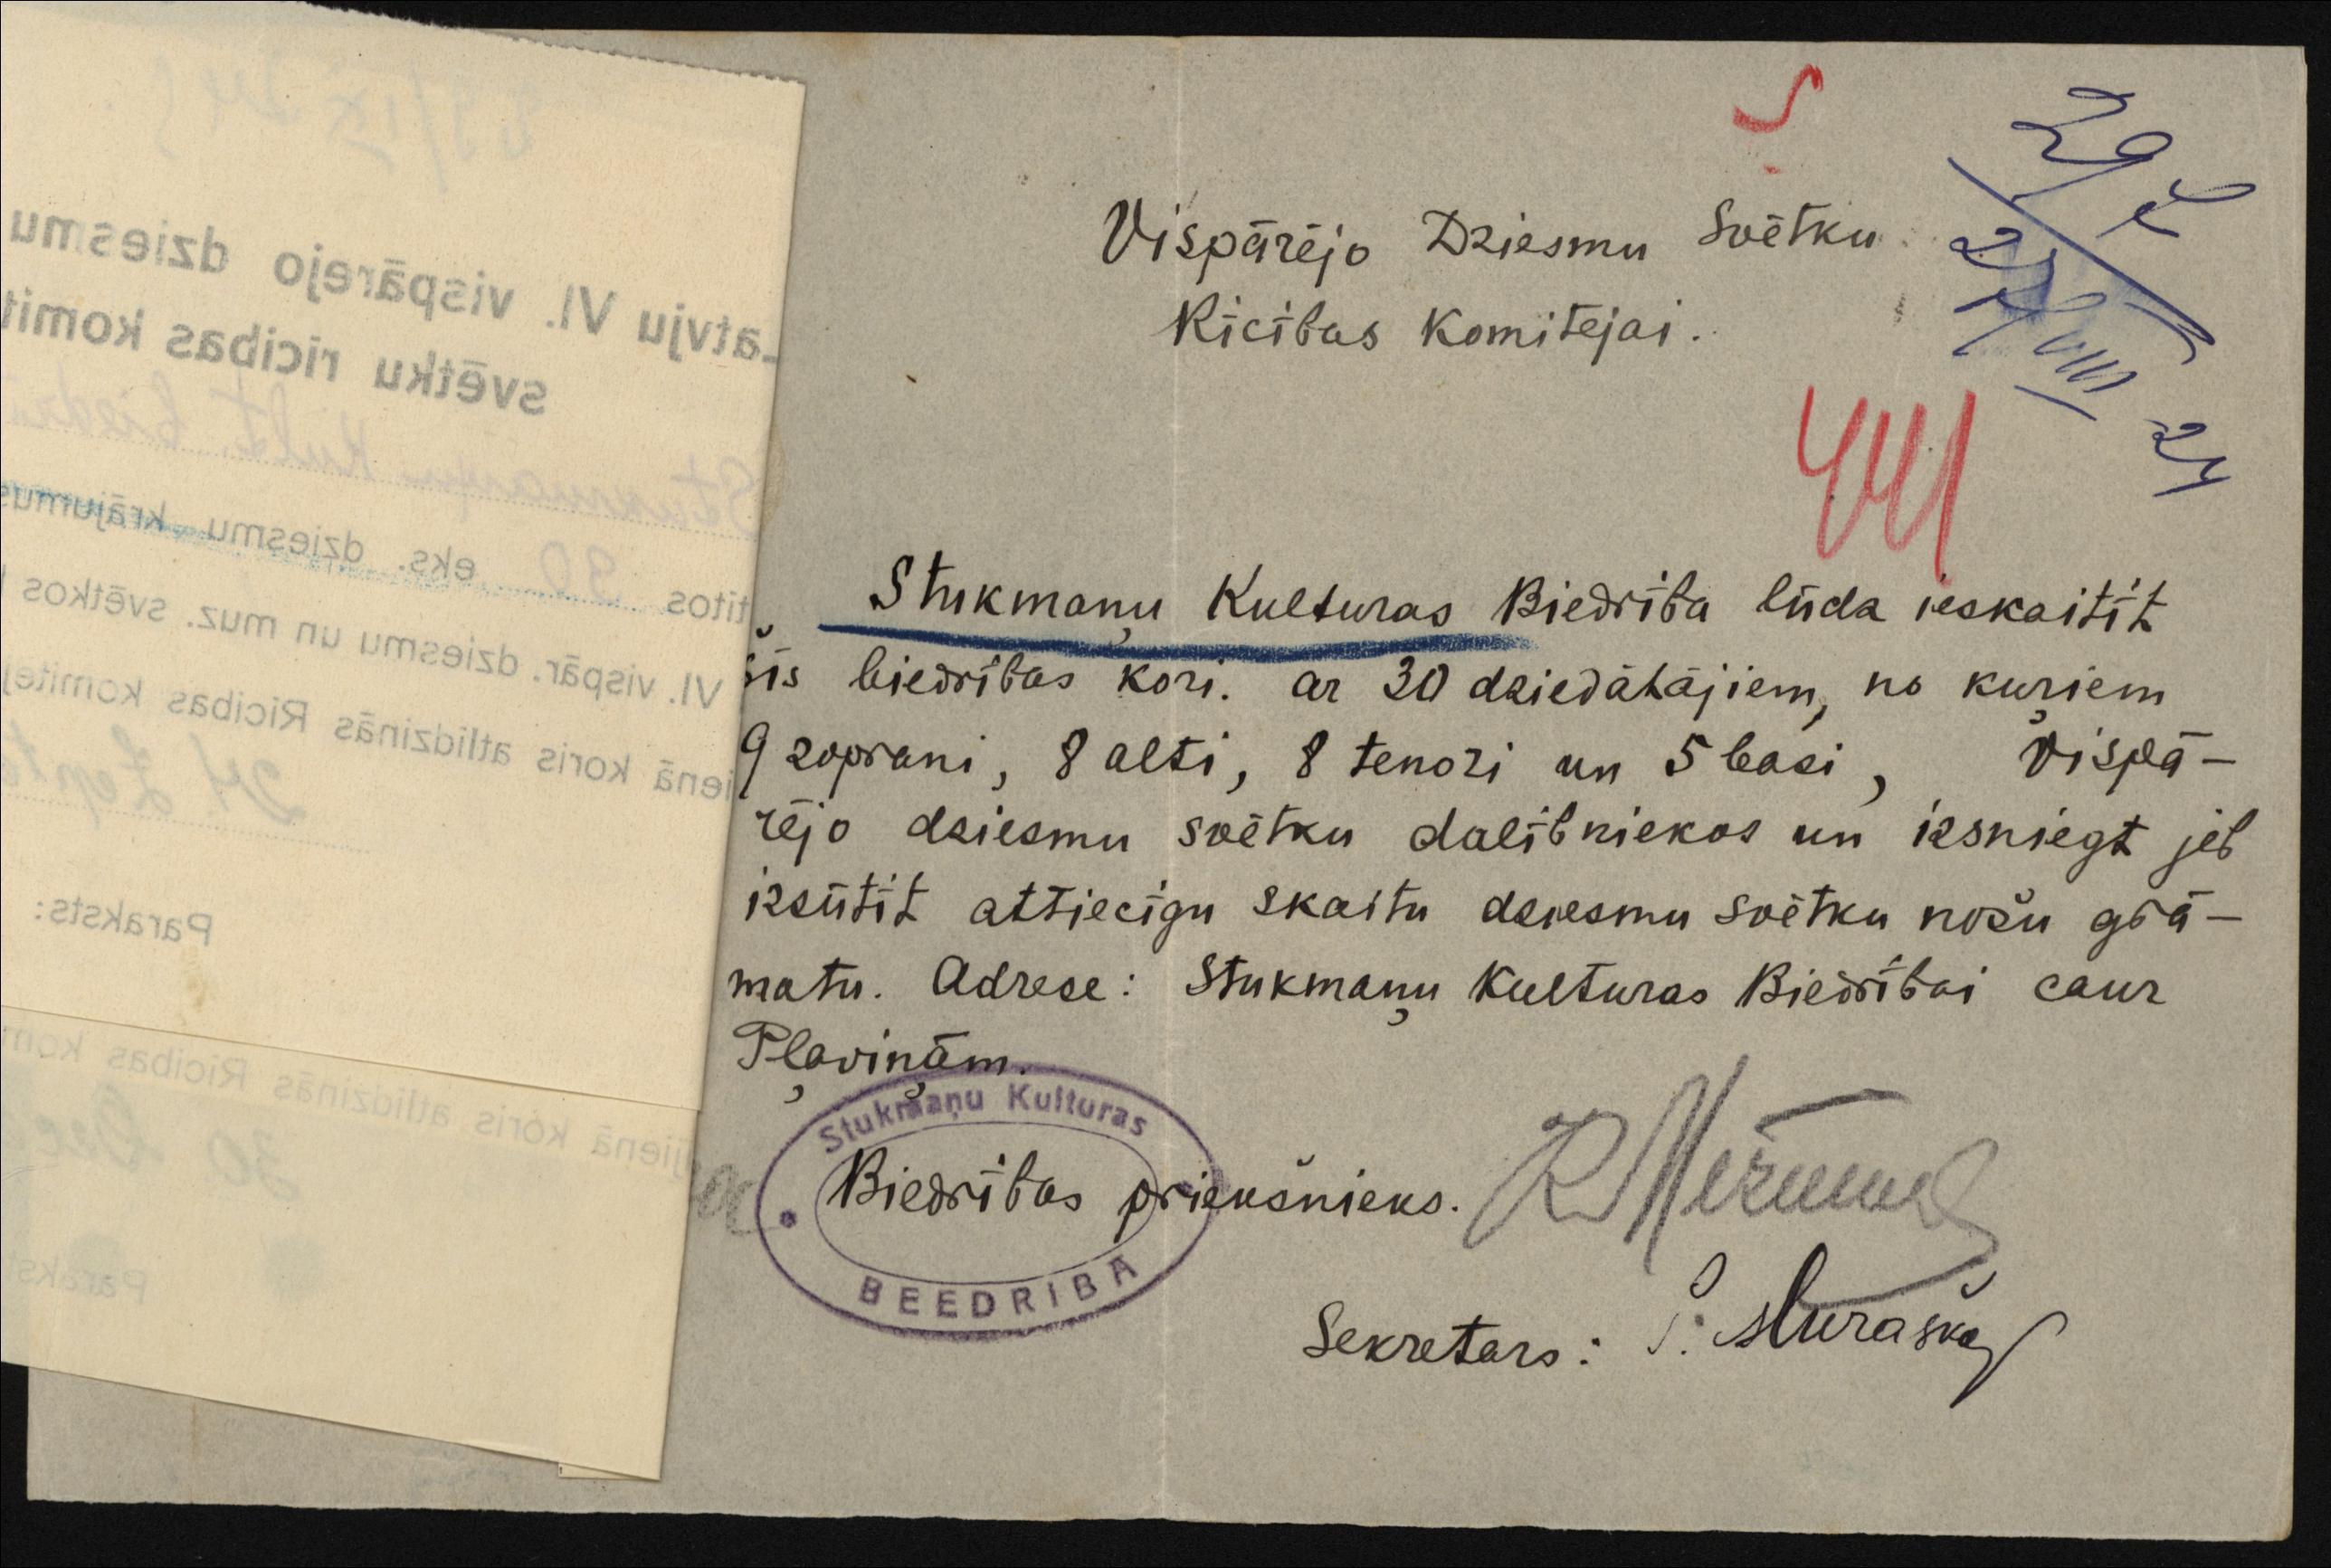 Vispārējo Dziesmu Svētku
Rīcības Komitejai.
441
Stukmaņu Kulturas Biedrība lūdz ieskaitīt
šīs biedrības kori. ar 30 dziedātājiem, no kuŗiem
9 soprani, 8 alti, 8 tenori un 5 basi, Vispā-
rējo dziesmu svētku dalībniekos un izsniegt jeb
izsūtīt attiecīgu skaitu dziesmu svētku nošu grā-
matu. Adrese: Stukmaņu Kulturas Biedrībai caur
Pļaviņām.
Stukmaņu Kulturas
BEEDRIBA
Biedrības priekšnieks.
Sekretars:
Latvju VI. vispārejo dziesmu
svētku rīcības komit
Stukmaņu Kult. biedrī
tītos 30 eks. dziesmu krājumus
VI. vispār. dziesmu un muz. svētkos
ienā koris atlīdzinās Rīcības komitej
24
Paraksts:
ienā koris atlīdzinās Rīcības kom
30
Paraks